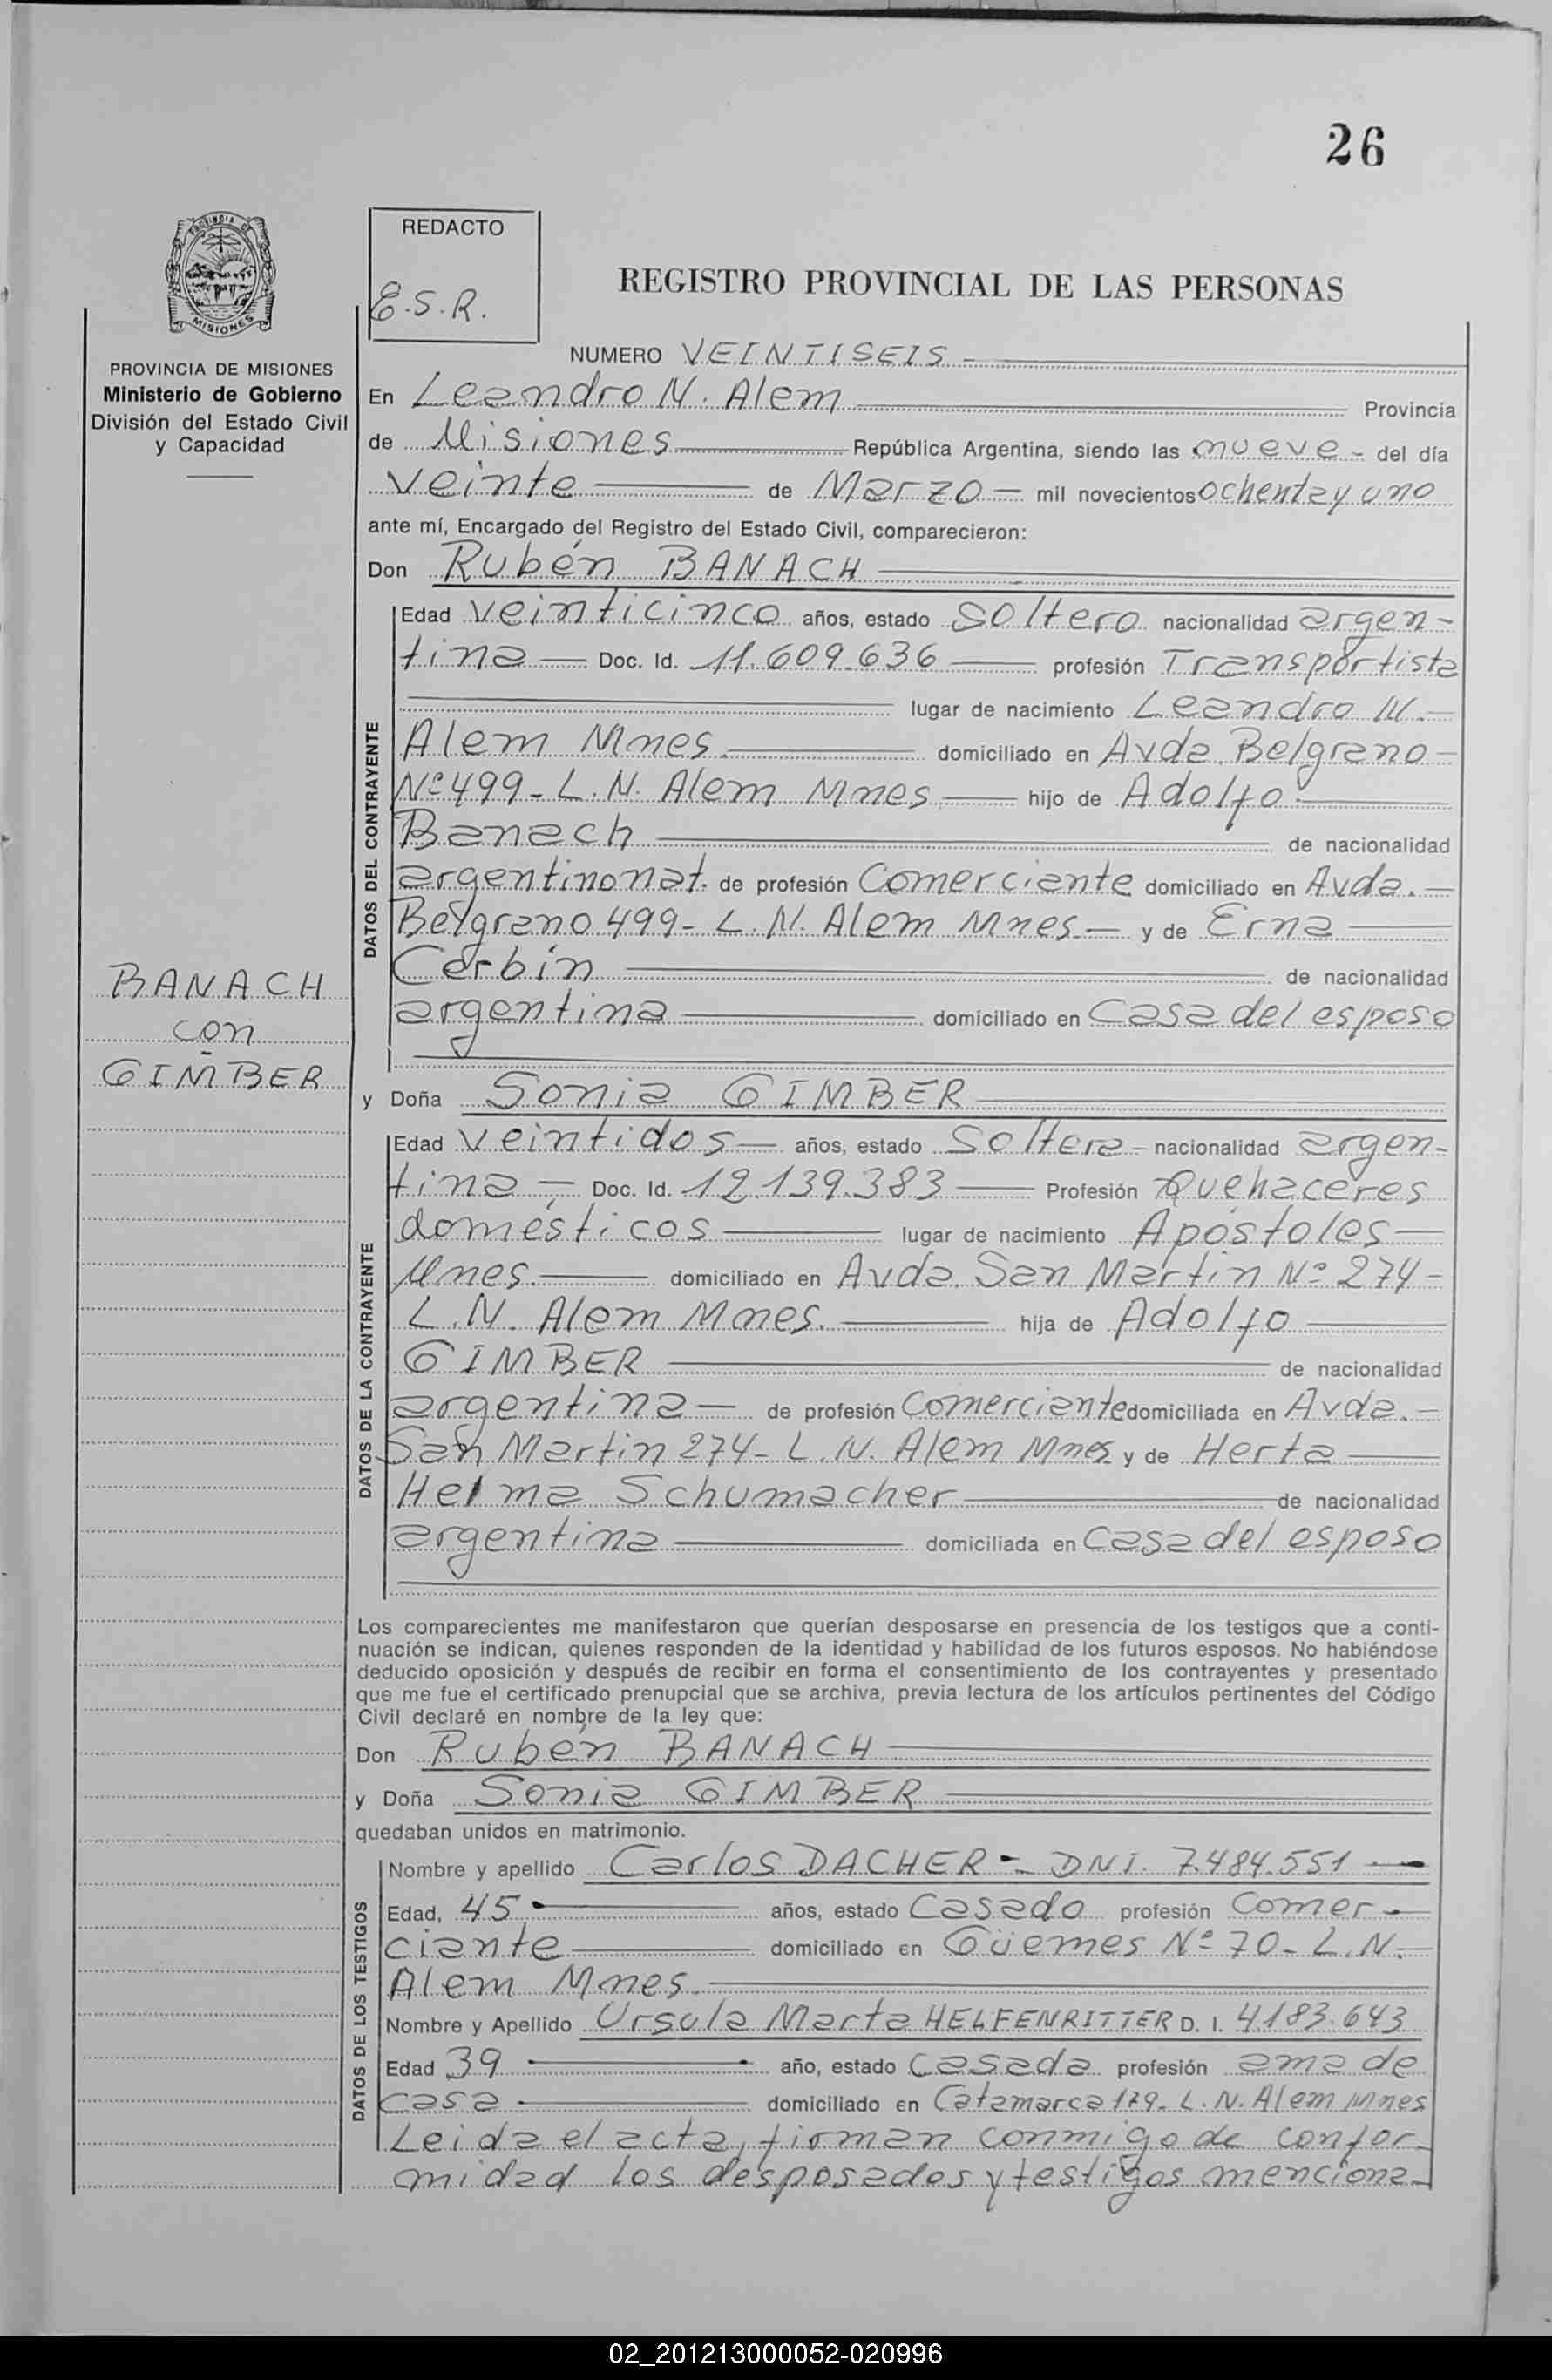 26
PROVINCIA DE
MISIONES
PROVINCIA DE MISIONES
Ministerio de Gobierno
División del Estado Civil
y Capacidad
BANACH
con
GIMBER
REDACTO
E.S.R.
REGISTRO PROVINCIAL DE LAS PERSONAS
NUMERO VEINTISEIS -
En Leandro N. Alem Provincia
de Misiones República Argentina, siendo las nueve - del día
veinte de Marzo - mil novecientos ochenta y uno
ante mí, Encargado del Registro del Estado Civil, comparecieron:
Don Rubén BANACH
DATOS DEL CONTRAYENTE
Edad veinticinco años, estado soltero nacionalidad argen-
tina - Doc. Id. 11.609.636 profesión Transportista
lugar de nacimiento Leandro N. -
Alem Mnes. domiciliado en Avda. Belgrano -
Nº 499 - L. N. Alem Mnes hijo de Adolfo
Banach de nacionalidad
argentino nat. de profesión Comerciante domiciliado en Avda. -
Belgrano 499 - L. N. Alem Mnes. - y de Erna
Cerbin de nacionalidad
argentina domiciliado en Casa del esposo
y Doña Sonia GIMBER
DATOS DE LA CONTRAYENTE
Edad veintidos - años, estado Soltera - nacionalidad argen-
tina - Doc. Id. 12.139.383 Profesión Quehaceres
domésticos lugar de nacimiento Apóstoles
Mnes. domiciliado en Avda. San Martín Nº 274 -
L. N. Alem Mnes. hija de Adolfo
GIMBER de nacionalidad
argentina - de profesión Comerciante domiciliada en Avda. -
San Martin 274 - L. N. Alem Mnes y de Herta
Helma Schumacher de nacionalidad
argentina domiciliada en Casa del esposo
Los comparecientes me manifestaron que querían desposarse en presencia de los testigos que a conti-
nuación se indican, quienes responden de la identidad y habilidad de los futuros esposos. No habiéndose
deducido oposición y después de recibir en forma el consentimiento de los contrayentes y presentado
que me fue el certificado prenupcial que se archiva, previa lectura de los artículos pertinentes del Código
Civil declaré en nombre de la ley que:
Don Rubén BANACH
y Doña Sonia GIMBER
quedaban unidos en matrimonio.
DATOS DE LOS TESTIGOS
Nombre y apellido Carlos DACHER - DNI. 7.484.551
Edad, 45 años, estado Casado profesión Comer-
ciante domiciliado en Güemes Nº 70 - L. N.
Alem Mnes.
Nombre y Apellido Ursula Marta HELFENRITTER D. I. 4183.643
Edad 39 año, estado Casada profesión ama de
casa domiciliado en Catamarca 179 - L. N. Alem Mnes
Leida el acta, firman conmigo de confor-
midad los desposados y testigos menciona-
02_201213000052-020996